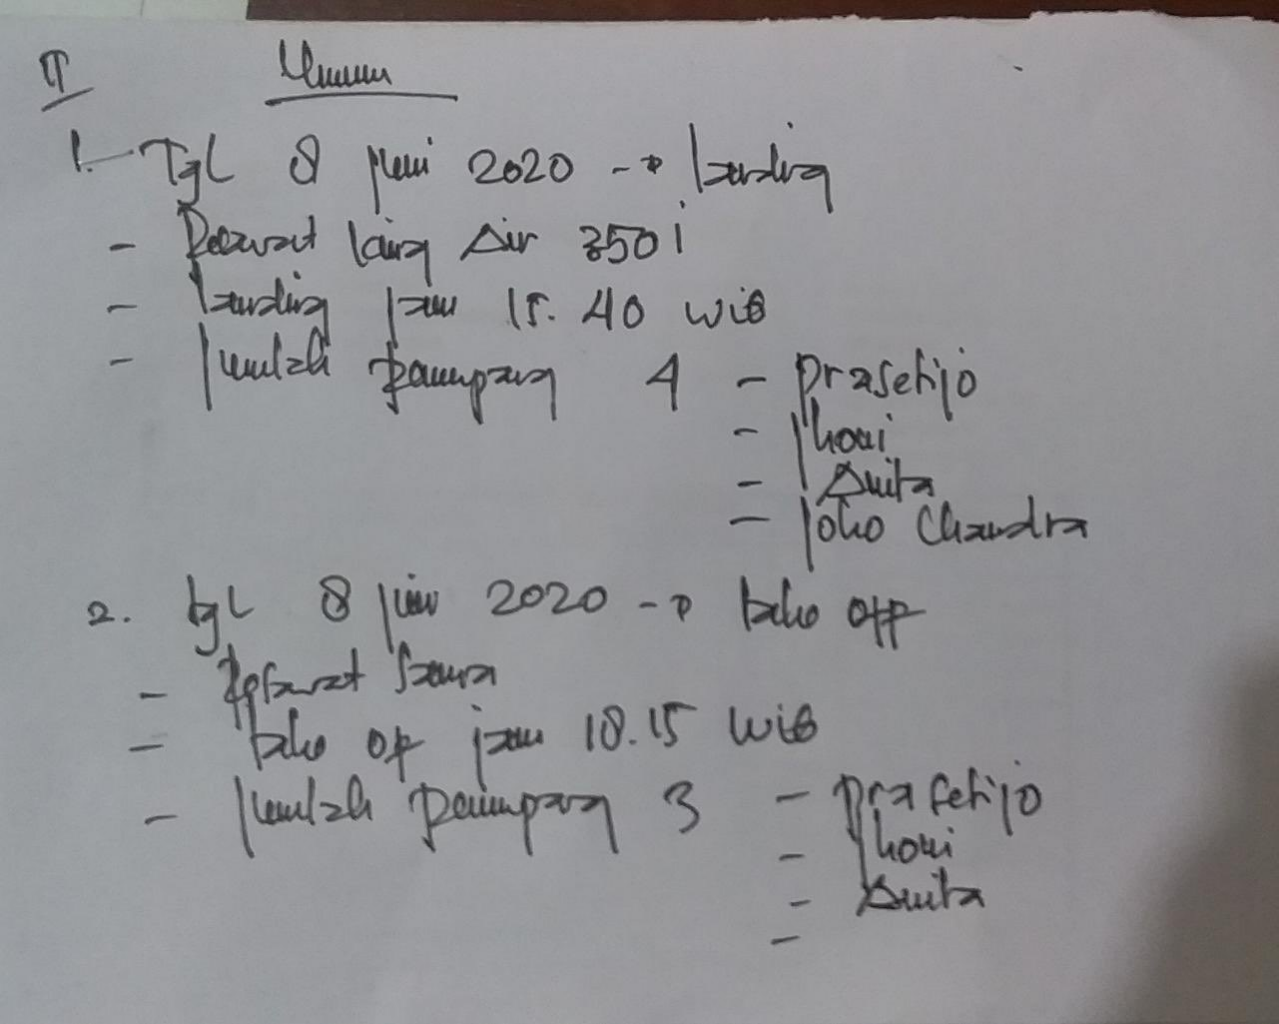 II Umum
1. Tgl 8 Juni 2020 -> landing
- Pesawat King Air 350 i
- landing jam 15.40 WIB
- Jumlah Penumpang 4 - Prasetijo
- Jhoni
- Anita
- Joko Chandra
2. tgl 8 Juni 2020 -> take off
- Pesawat Sama
- take off jam 18.15 WIB
- Jumlah Penumpang 3 - Prasetijo
- Jhoni
- Anita
-